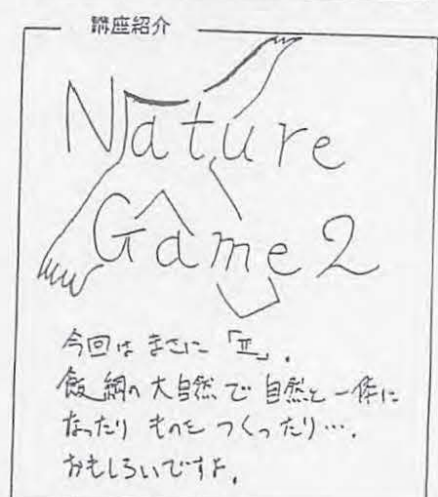 講座紹介
Nature
Game 2
今回は まさに 「Ⅱ」.
飯綱の 大自然で 自然と 一体に
なったり ものを つくったり….
おもしろいですよ.